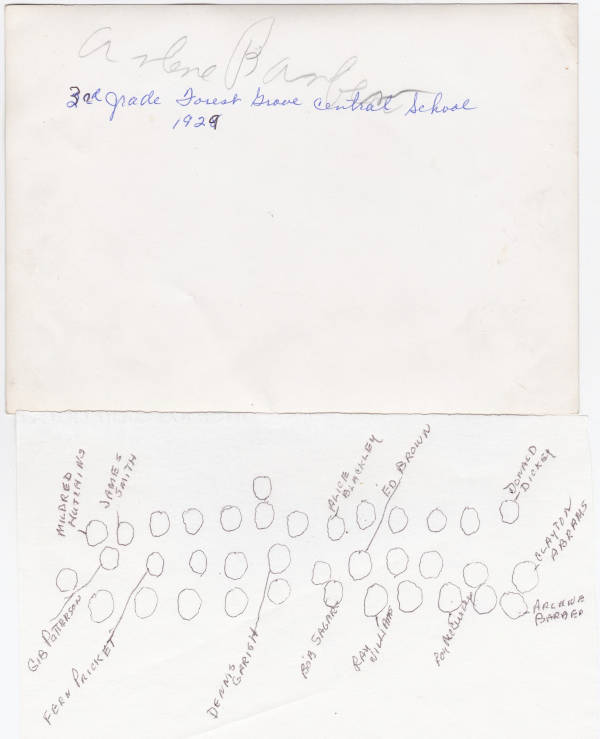 Arlene Barber
3rd grade Forest Grove Central School
1929
MILDRED
HUTCHINS
JAMES
SMITH
ALICE
BLACKLEY
ED BROWN
DONALD
DICKEY
CLAYTON
ABRAMS
ARLENE
BARBER
GIB PATTERSON
FERN PRICKET
DENNIS
GARISH
BOB SAGAR
RAY
WILLIAMS